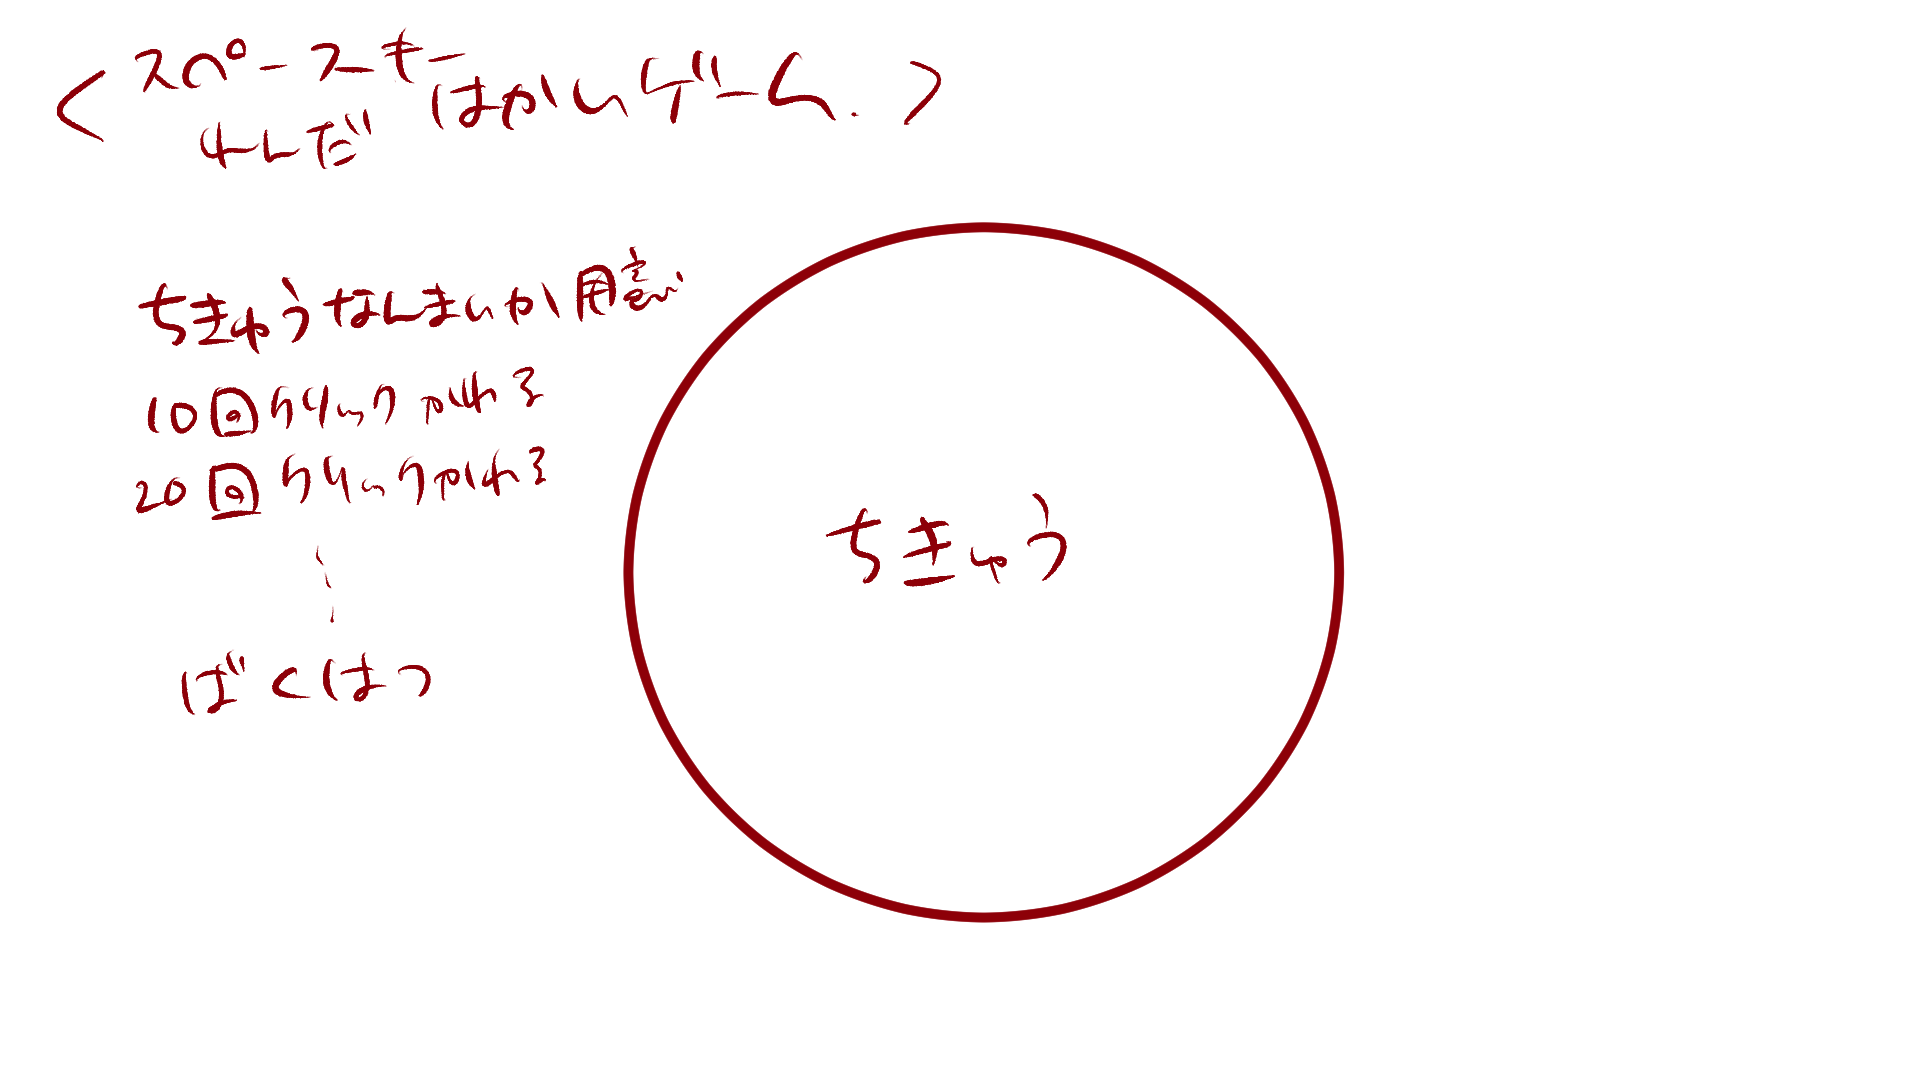 <スペースキー
れんだ はかいゲーム.>
ちきゅうなんまいか用意
10回クリック かわる
20回クリックかわる
ばくはつ
ちきゅう